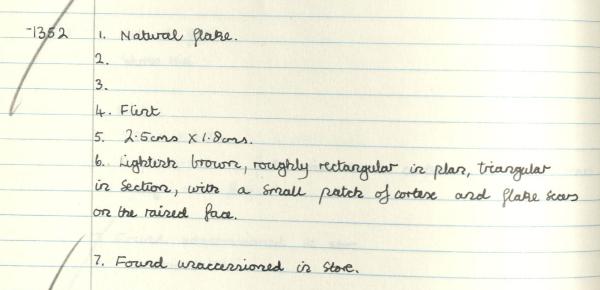 -1352 1. Natural flake.
2.
3.
4. Flint
5. 2.5cms x 1.8cms.
6. Lightish brown, roughly rectangular in plan, triangular
in section, with a small patch of cortex and flake scars
on the raised face.
7. Found unaccessioned in store.